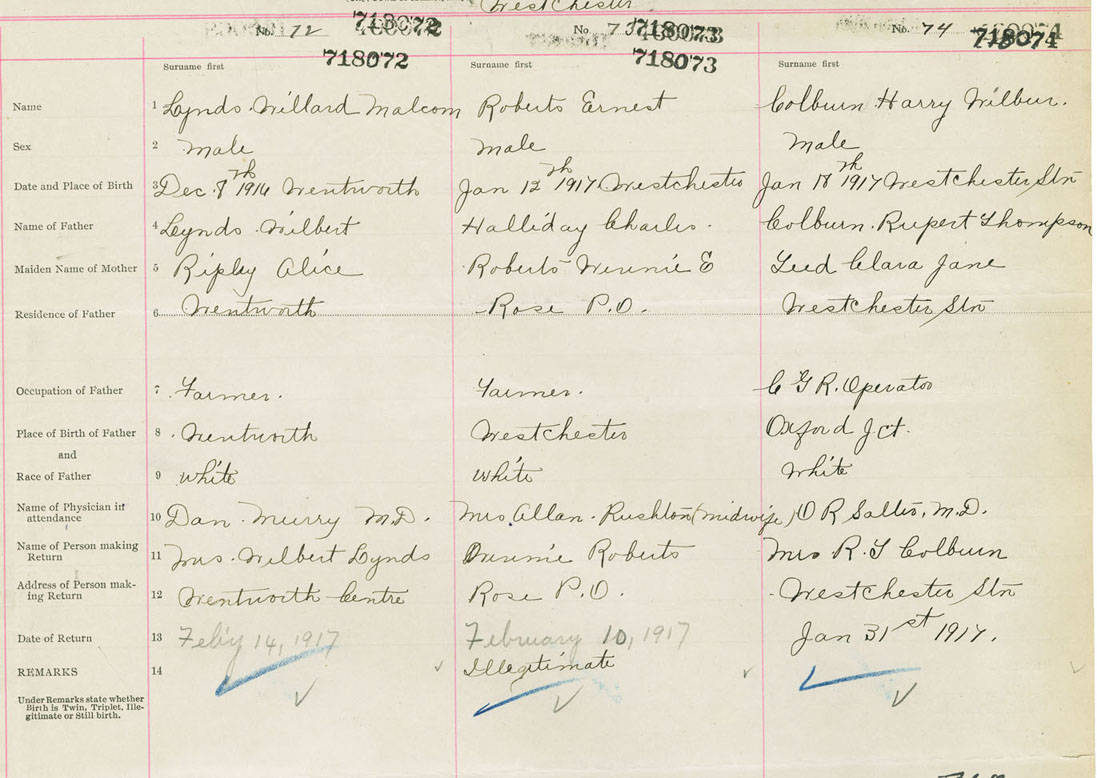 Westchester
No. 72 718072 No 73 718073 No. 74 718074
718072 718073
Surname first Surname first Surname first
Name 1 Lynds Willard Malcom Roberts Ernest Colburn Harry Wilbur.
Sex 2 male male Male
Date and Place of Birth 3 Dec. 7th 1916 Wentworth Jan 12th 1917 Westchester Jan 18th 1917 Westchester Stn
Name of Father 4 Lynds Wilbert Halliday Charles. Colburn. Rupert Thompson
Maiden Name of Mother 5 Ripley Alice Roberts Winnie E Clara Jane
Residence of Father 6 Wentworth Rose P.O. Westchester Stn
Occupation of Father 7 Farmer. Farmer. C G R. Operator
Place of Birth of Father 8 Wentworth Westchester Oxford Jct.
and
Race of Father 9 white white White
Name of Physician in
attendance 10 Dan Murry M.D. Mrs. Allan Rushton (midwife) O R Salter, M.D.
Name of Person making
Return 11 Mrs. Wilbert Lynds Winnie Roberts Mrs R. T Colburn
Address of Person mak-
ing Return 12 Wentworth Centre Rose P.O. Westchester Stn
Date of Return 13 Feb'y 14, 1917 February 10, 1917 Jan 31st 1917.
REMARKS 14 Illegitimate
Under Remarks state whether
Birth is Twin, Triplet, Ille-
gitimate or Still birth.